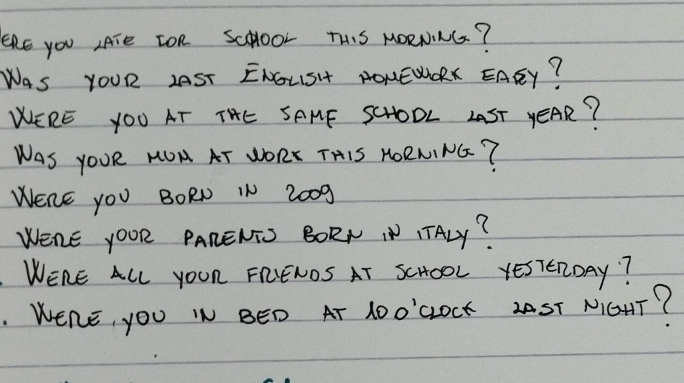 ERE YOU LATE FOR SCHOOL THIS MORNING?
WAS YOUR LAST ENGLISH HOMEWORK EASY?
WERE YOU AT THE SAME SCHOOL LAST YEAR?
WAS YOUR MUM AT WORK THIS MORNING?
WERE YOU BORN IN 2009
WERE YOUR PARENTS BORN IN ITALY?
. WERE ALL YOUR FRIENDS AT SCHOOL YESTERDAY?
. WERE YOU IN BED AT 10 O'CLOCK LAST NIGHT?